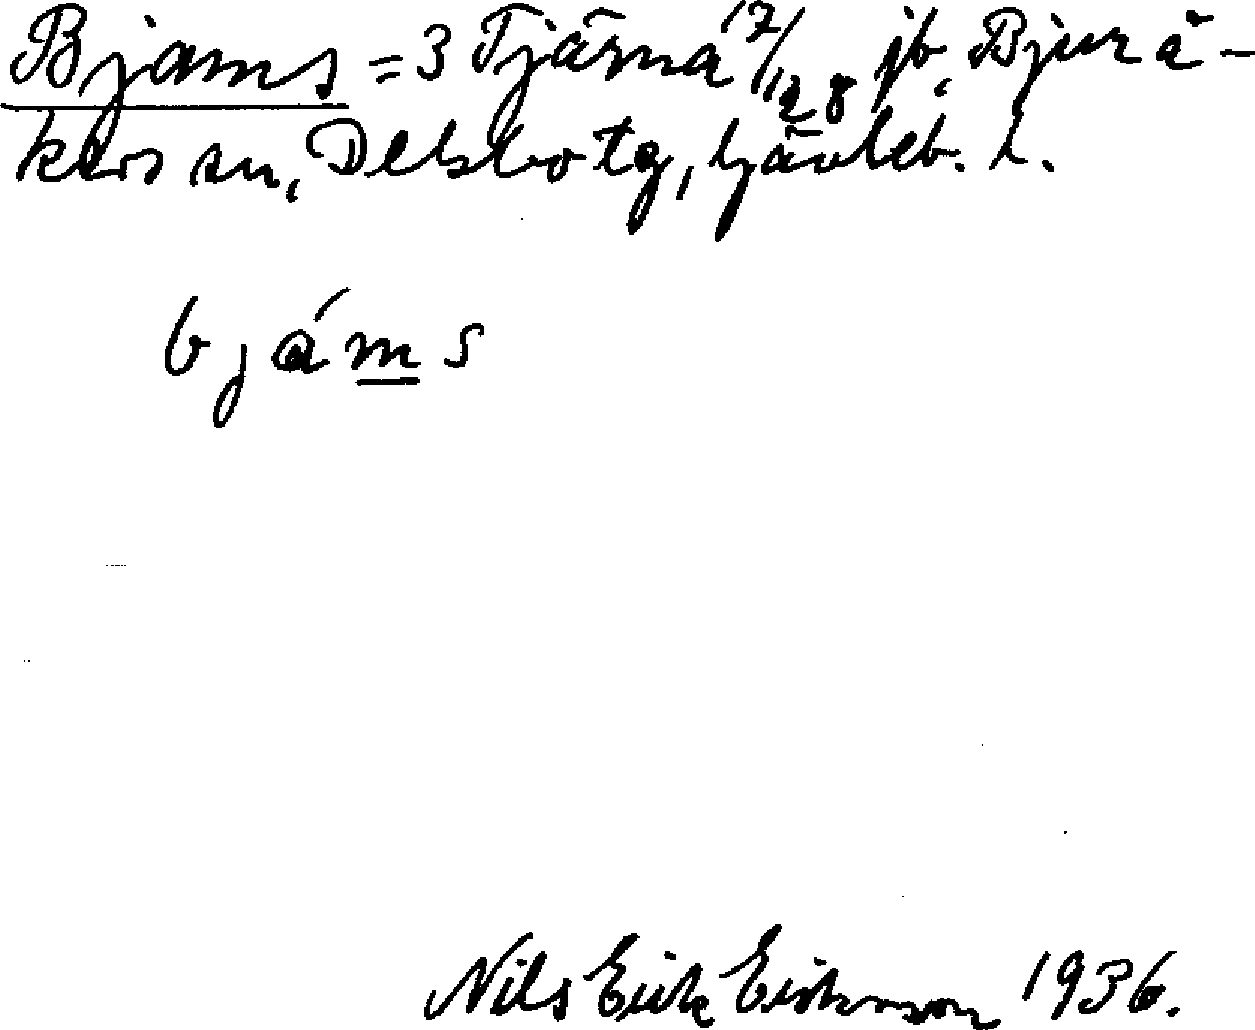 Bjams = 3 Tjärna 17/128 jb, Bjurå-
kers sn, Delsbo tg, Gävleb. l.
bjáms
Nils Erik Eriksson 1936.